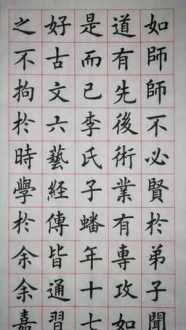 如師師不必賢於弟子聞
道有先後術業有專攻如
是而已李氏子蟠年十七
好古文六藝經傳皆通習
之不拘於時學於余余嘉